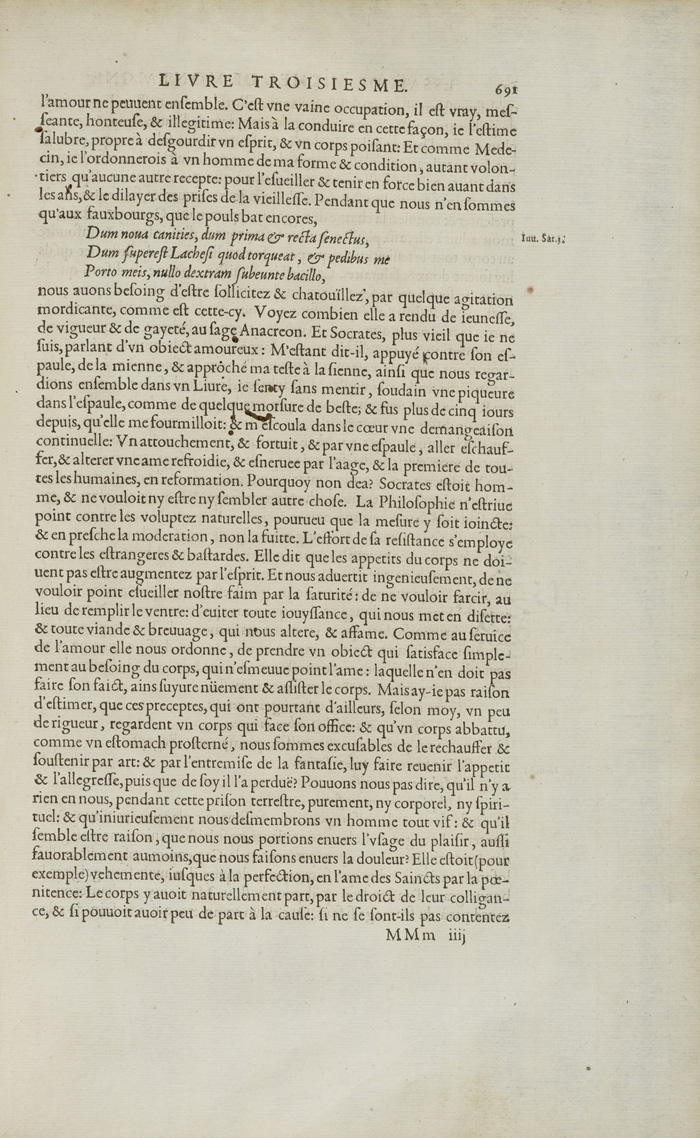 LIVRE TROISIESME. 691
l'amour ne peuuent ensemble. C'est vne vaine occupation, il est vray, mes-
seante, honteuse, & illegitime: Mais à la conduire en cette façon, ie l'estime
salubre, propre à desgourdir vn esprit, & vn corps poisant: Et comme Mede-
cin, ie l'ordonnerois à vn homme de ma forme & condition, autant volon-
tiers qu'aucune autre recepte: pour l'esueiller & tenir en force bien auant dans
les ans, & le dilayer des prises de la vieillesse. Pendant que nous n'en sommes
qu'aux fauxbourgs, que le pouls bat encores,
Dum noua canities, dum prima & recta senectus,
Iuu. Sat. 3.
Dum superest Lachesi quod torqueat, & pedibus me
Porto meis, nullo dextram subeunte bacillo,
nous auons besoing d'estre sollicitez & chatouïllez, par quelque agitation
mordicante, comme est cette-cy. Voyez combien elle a rendu de ieunesse,
de vigueur & de gayeté, au sage Anacreon. Et Socrates, plus vieil que ie ne
suis, parlant d'vn obiect amoureux: M'estant dit-il, appuyé contre son es-
paule, de la mienne, & approché ma teste à la sienne, ainsi que nous regar-
dions ensemble dans vn Liure, ie senty sans mentir, soudain vne piqueure
dans l'espaule, comme de quelque morsure de beste; & fus plus de cinq iours
depuis, qu'elle me fourmilloit: & m'escoula dans le cœur vne demangeaison
continuelle: Vn attouchement, & fortuit, & par vne espaule, aller eschauf-
fer, & alterer vne ame refroidie, & esneruee par l'aage, & la premiere de tou-
tes les humaines, en reformation. Pourquoy non dea? Socrates estoit hom-
me, & ne vouloit ny estre ny sembler autre chose. La Philosophie n'estriue
point contre les voluptez naturelles, pourueu que la mesure y soit ioincte:
& en presche la moderation, non la fuitte. L'effort de sa resistance s'employe
contre les estrangeres & bastardes. Elle dit que les appetits du corps ne doi-
uent pas estre augmentez par l'esprit. Et nous aduertit ingenieusement, de ne
vouloir point esueiller nostre faim par la saturité: de ne vouloir farcir, au
lieu de remplir le ventre: d'euiter toute iouyssance, qui nous met en disette:
& toute viande & breuuage, qui nous altere, & affame. Comme au seruice
de l'amour elle nous ordonne, de prendre vn obiect qui satisface simple-
ment au besoing du corps, qui n'esmeuue point l'ame: laquelle n'en doit pas
faire son faict, ains suyure nüement & assister le corps. Mais ay-ie pas raison
d'estimer, que ces preceptes, qui ont pourtant d'ailleurs, selon moy, vn peu
de rigueur, regardent vn corps qui face son office: & qu'vn corps abbattu,
comme vn estomach prosterné, nous sommes excusables de le rechauffer &
soustenir par art: & par l'entremise de la fantasie, luy faire reuenir l'appetit
& l'allegresse, puis que de soy il l'a perduë? Pouuons nous pas dire, qu'il n'y a
rien en nous, pendant cette prison terrestre, purement, ny corporel, ny spiri-
tuel: & qu'iniurieusement nous desmembrons vn homme tout vif: & qu'il
semble estre raison, que nous nous portions enuers l'vsage du plaisir, aussi
fauorablement aumoins, que nous faisons enuers la douleur? Elle estoit (pour
exemple) vehemente, iusques à la perfection, en l'ame des Saincts par la pœ-
nitence: Le corps y auoit naturellement part, par le droict de leur colligan-
ce, & si pouuoit auoir peu de part à la cause: si ne se sont-ils pas contentez
MMm iiij